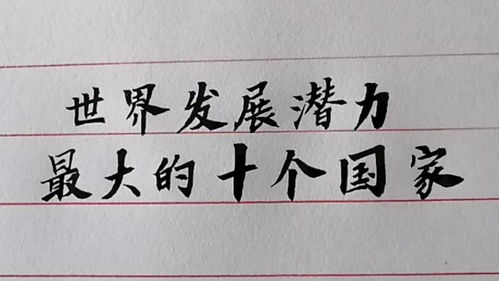 世界发展潜力
最大的十个国家